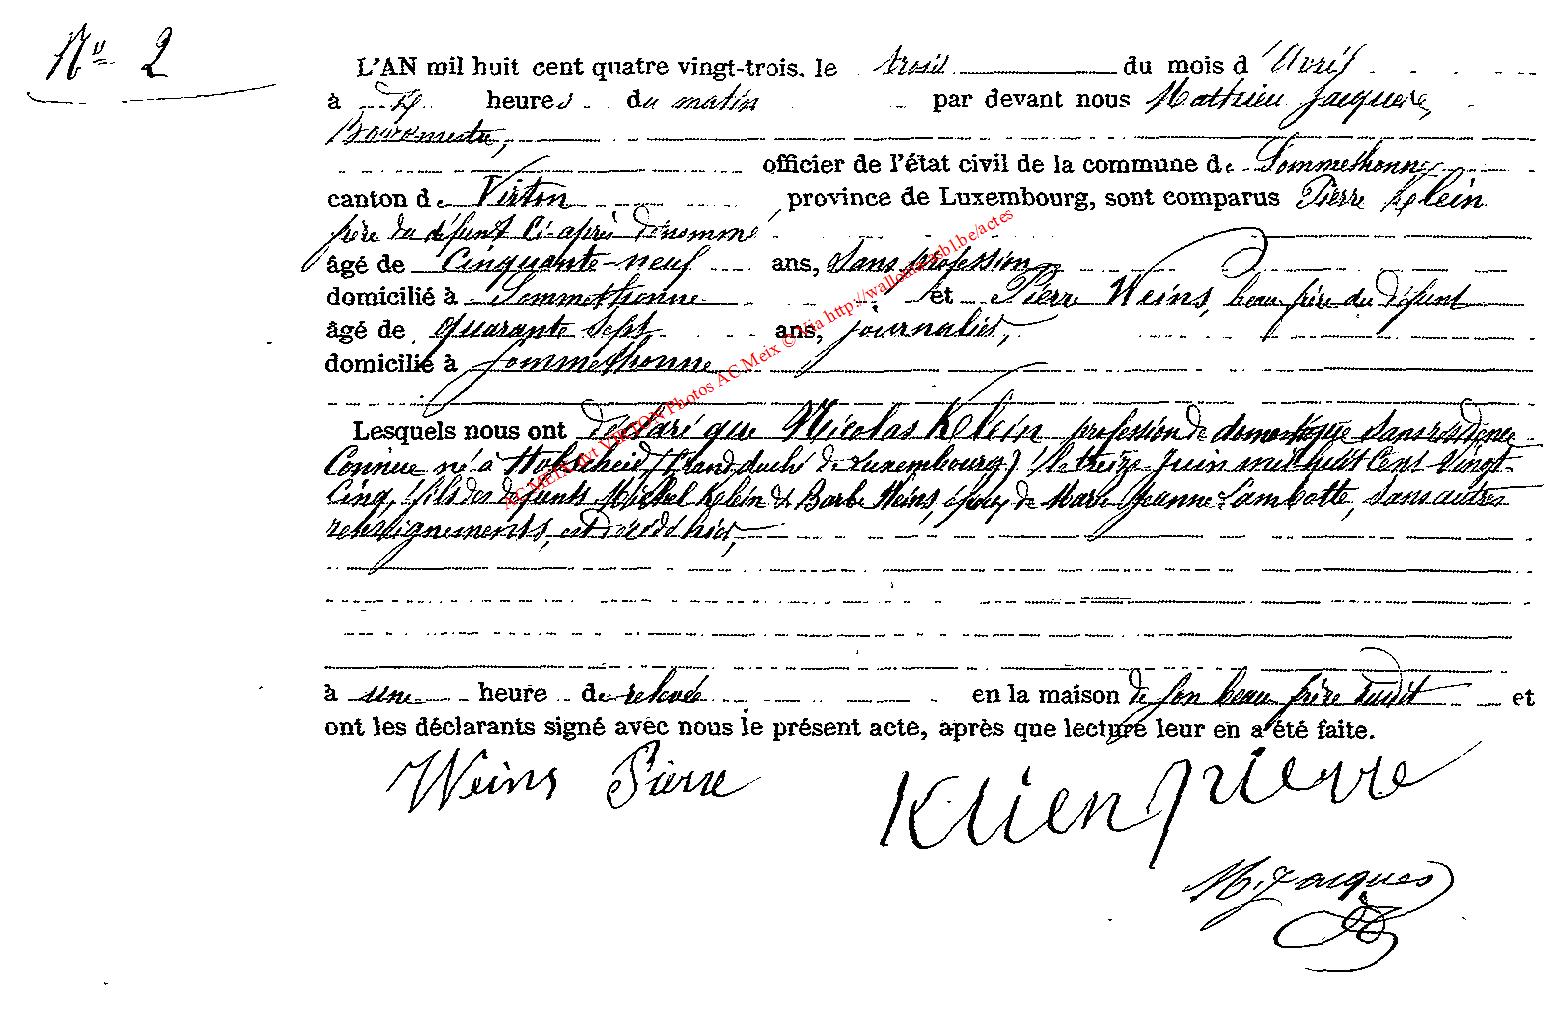 No 2
L'AN mil huit cent quatre vingt-trois, le trois du mois d'Avril
à heures du matin par devant nous Mathieu Jacques,
Bourgmestre,
officier de l'état civil de la commune de Sommethonne
canton de Virton province de Luxembourg, sont comparus Pierre Klein
frère du défunt ci-après dénommé,
âgé de Cinquante-neuf ans, Sans profession
domicilié à Sommethonne et Pierre Weins, beau frère du défunt
âgé de quarante sept ans, journalier,
domicilié à Sommethonne
Lesquels nous ont déclaré que Nicolas Klein profession de domestique sans résidence
Connue né à (Grand duché de Luxembourg) le treize Juin mil huit Cent Vingt-
Cinq, fils des défunts Michel Klein & Barbe Weins, époux de Marie Jeanne Lambotte, Sans autres
renseignements, est décédé hier,
à une heure de relevée en la maison de son beau frère susdit et
ont les déclarants signé avec nous le présent acte, après que lecture leur en a été faite.
Weins Pierre Klien pierre
M. Jacques
AC MEIX dvt VIRTON Photos AC Meix © Via http://wallonia.asbl.be/actes